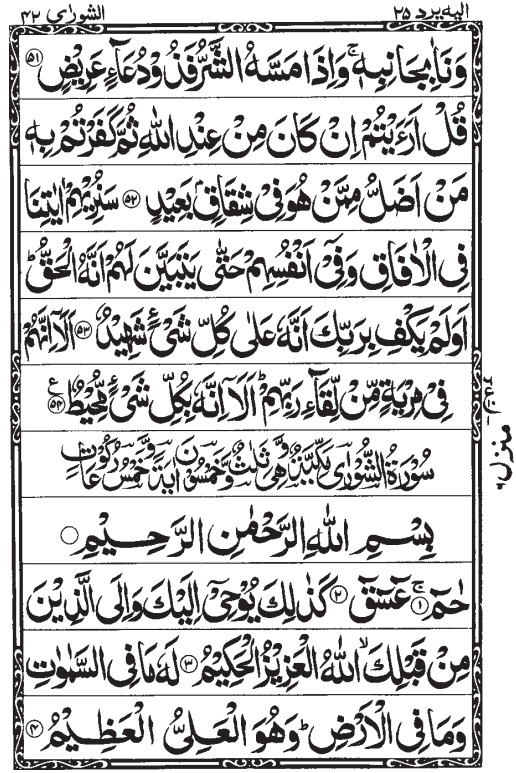 الیه یرد ۲۵
الشورٰی ۴۲
وَنَاٰ بِجَانِبِهٖ ۚ وَاِذَا مَسَّهُ الشَّرُّ فَذُوْ دُعَآءٍ عَرِيْضٍ ۵۱
قُلْ اَرَءَيْتُمْ اِنْ كَانَ مِنْ عِنْدِ اللّٰهِ ثُمَّ كَفَرْتُمْ بِهٖ
مَنْ اَضَلُّ مِمَّنْ هُوَ فِيْ شِقَاقٍۭ بَعِيْدٍ ۵۲ سَنُرِيْهِمْ اٰيٰتِنَا
فِي الْاٰفَاقِ وَفِيْٓ اَنْفُسِهِمْ حَتّٰى يَتَبَيَّنَ لَهُمْ اَنَّهُ الْحَقُّ ؕ
اَوَلَمْ يَكْفِ بِرَبِّكَ اَنَّهٗ عَلٰى كُلِّ شَيْءٍ شَهِيْدٌ ۵۳ اَلَاۤ اِنَّهُمْ
فِيْ مِرْيَةٍ مِّنْ لِّقَآءِ رَبِّهِمْ ؕ اَلَاۤ اِنَّهٗ بِكُلِّ شَيْءٍ مُّحِيْطٌ ۵۴ ع
سُوْرَةُ الشُّوْرٰى مَكِّيَّةٌ وَّهِيَ ثَلٰثٌ وَّخَمْسُوْنَ اٰيَةً وَّخَمْسُ رُكُوْعَاتٍ
بِسْمِ اللّٰهِ الرَّحْمٰنِ الرَّحِيْمِ
حٰمٓ ۚ ۱ عٓسٓقٓ ۲ كَذٰلِكَ يُوْحِيْٓ اِلَيْكَ وَاِلَى الَّذِيْنَ
مِنْ قَبْلِكَ ۙ اللّٰهُ الْعَزِيْزُ الْحَكِيْمُ ۳ لَهٗ مَا فِي السَّمٰوٰتِ
وَمَا فِي الْاَرْضِ ؕ وَهُوَ الْعَلِيُّ الْعَظِيْمُ ۴
منزل ۶